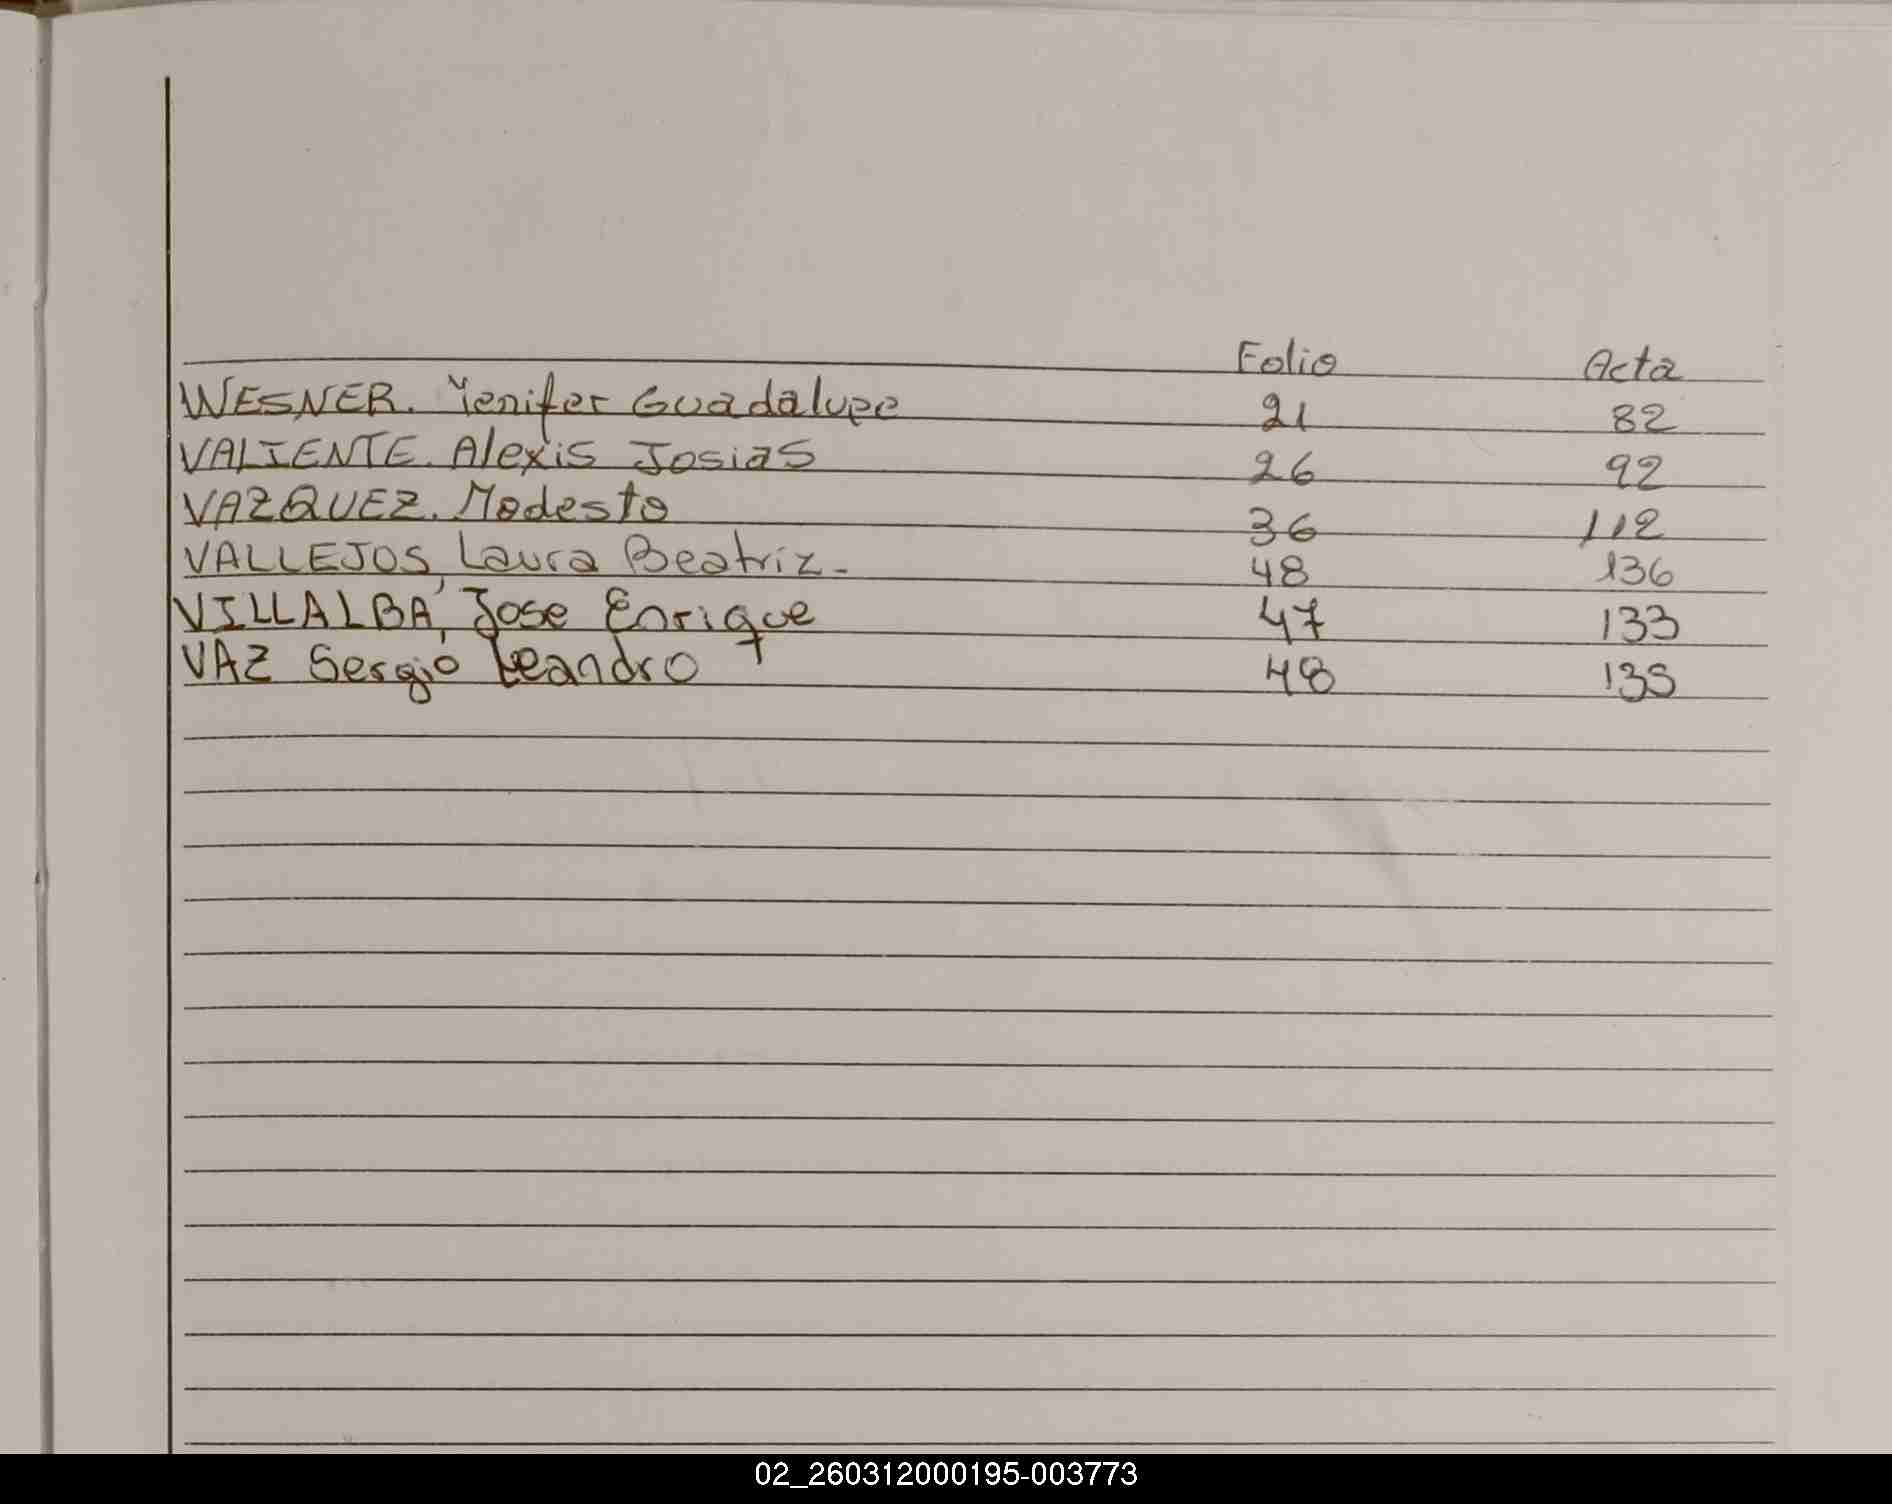 Folio Acta
WESNER. Yenifer Guadalupe 21 82
VALIENTE. Alexis Josias 26 92
VAZQUEZ. Modesto 36 112
VALLEJOS, Laura Beatriz.- 48 136
VILLALBA, Jose Enrique 47 133
VAZ Sergio Leandro 48 135
02_260312000195-003773